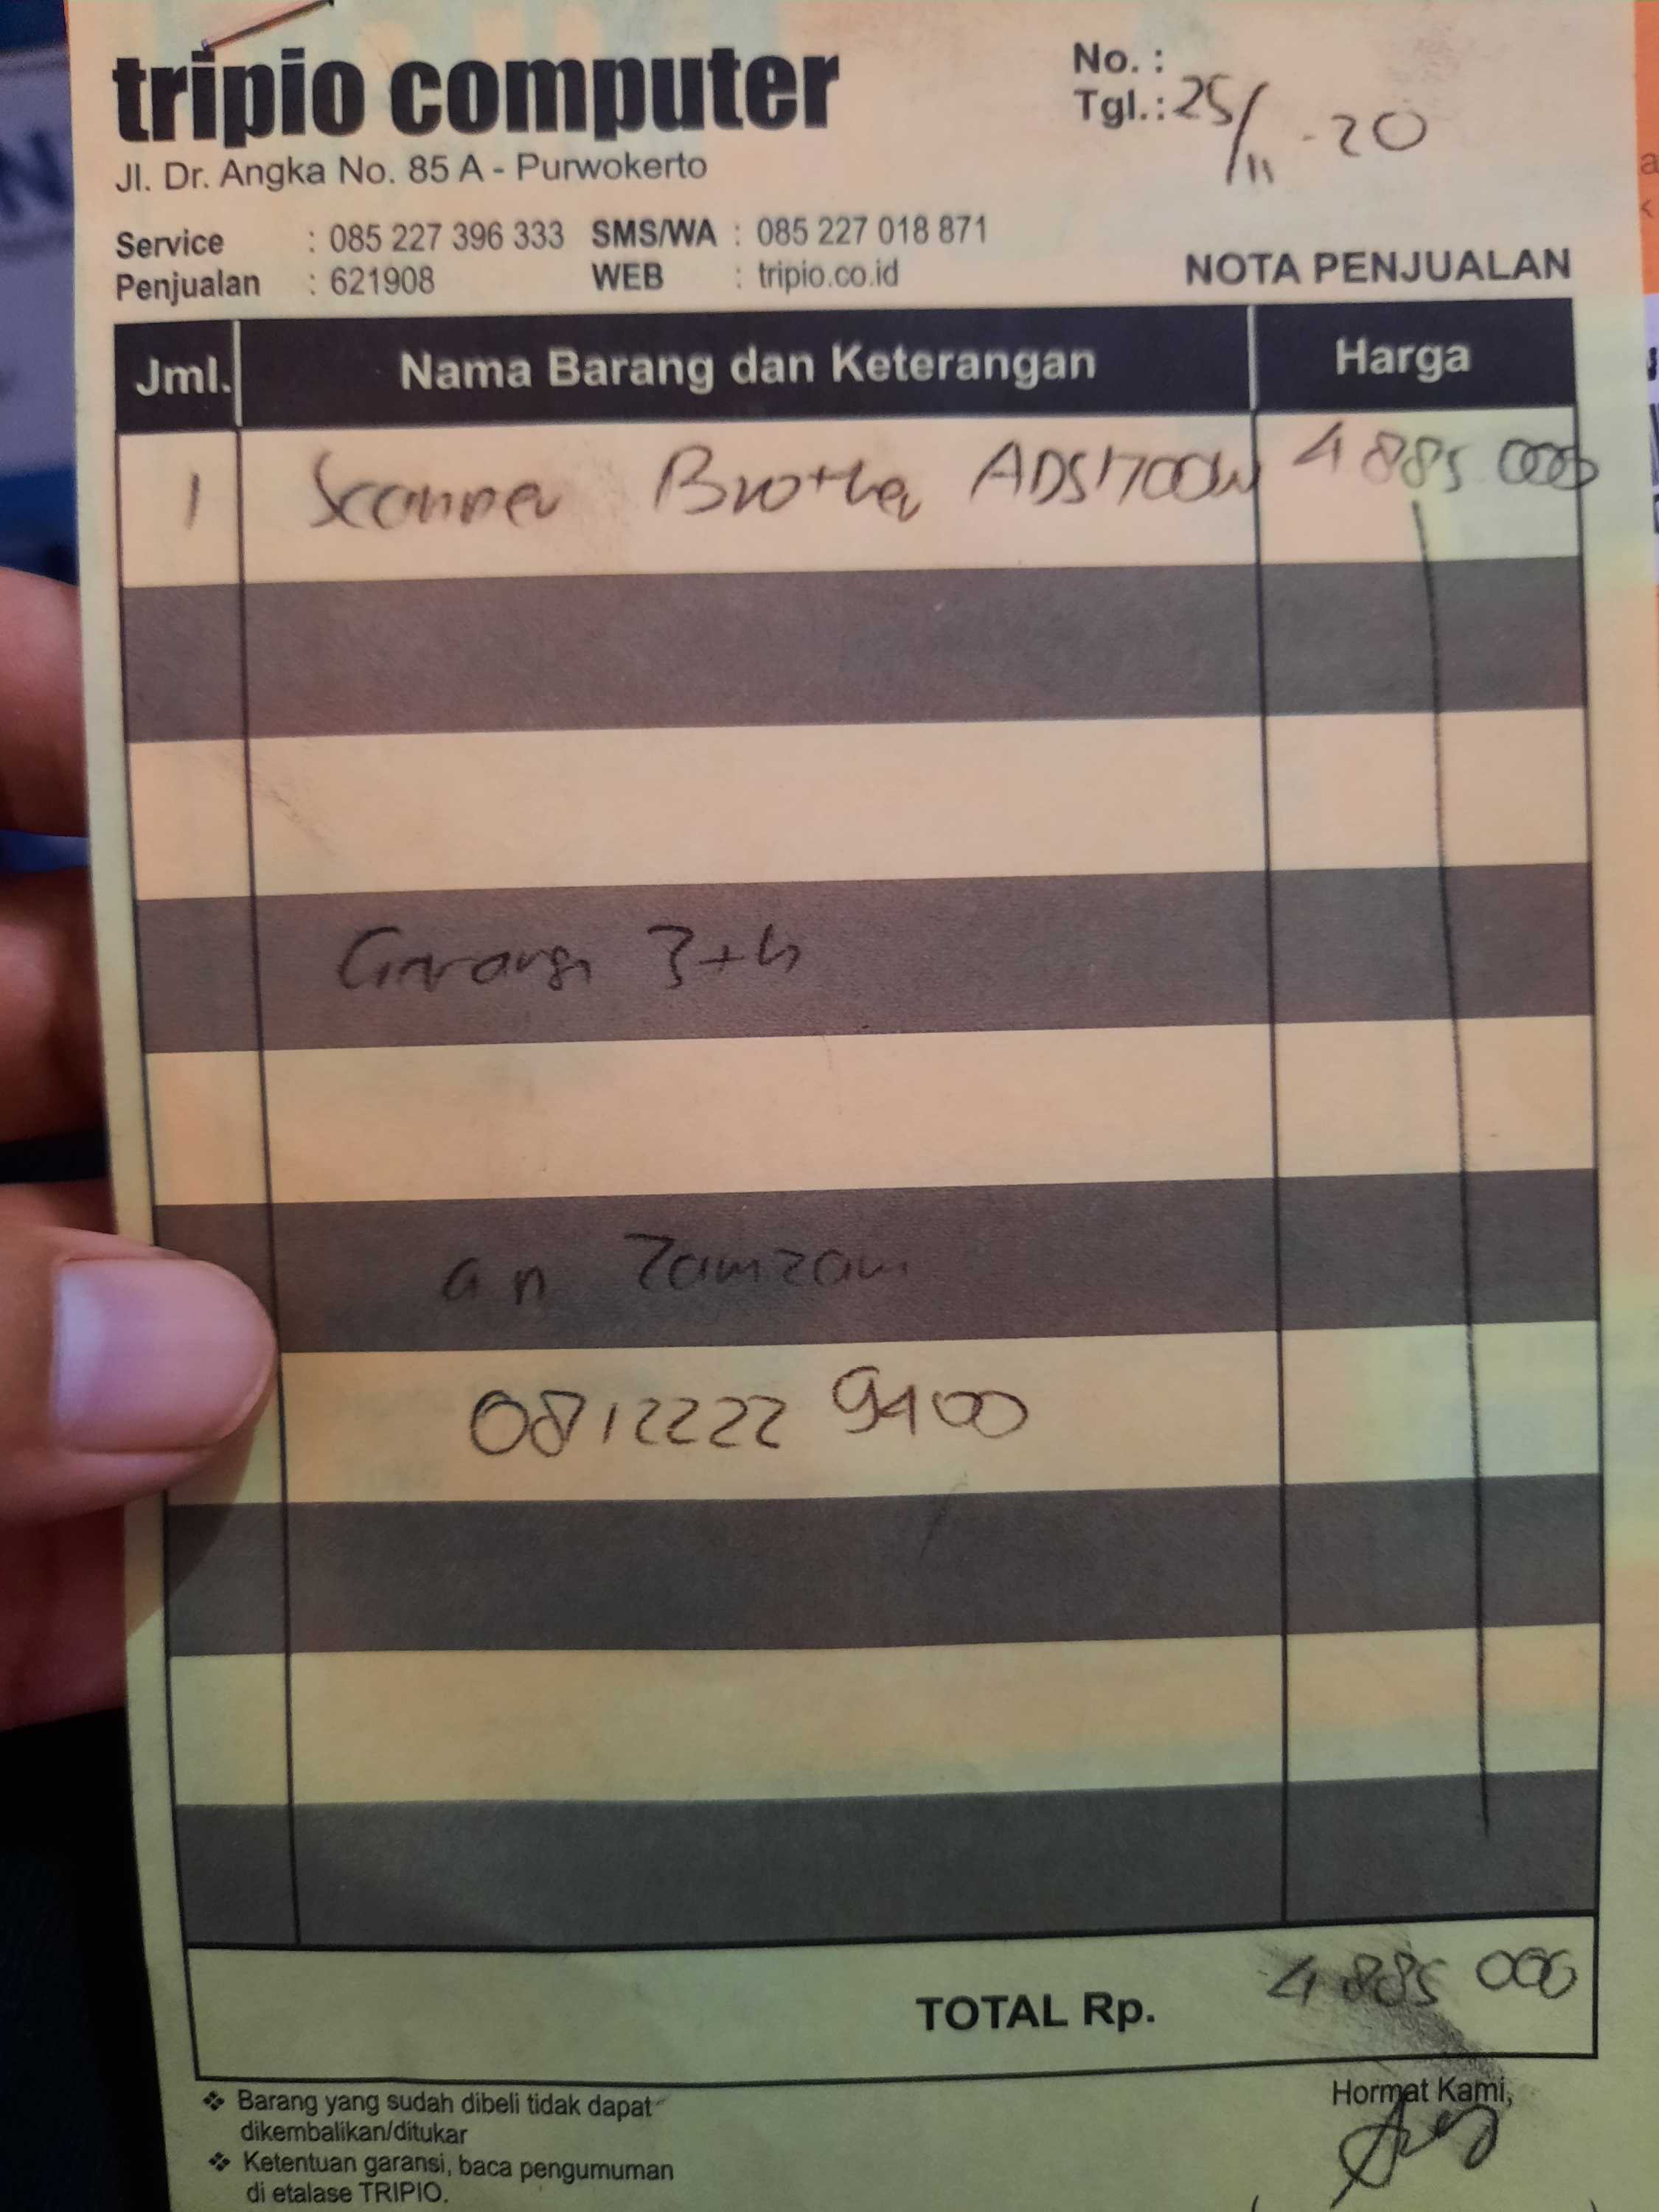 tripio computer
Jl. Dr. Angka No. 85 A - Purwokerto
No. :
Tgl.: 25/11 - 20
Service : 085 227 396 333 SMS/WA : 085 227 018 871
Penjualan : 621908 WEB : tripio.co.id
NOTA PENJUALAN
Jml. Nama Barang dan Keterangan Harga
1 Scanner Brother ADS1700W 4 885 000
Garansi 3 th
an Zamzam
0812222 9400
TOTAL Rp. 4 885 000
❖ Barang yang sudah dibeli tidak dapat
dikembalikan/ditukar
❖ Ketentuan garansi, baca pengumuman
di etalase TRIPIO.
Hormat Kami,